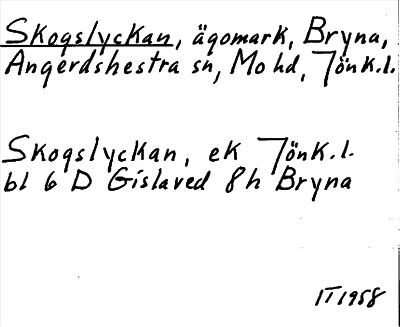 Skogslyckan, ägomark, Bryna,
Angerdshestra sn, Mo hd, Jönk.l.
Skogslyckan, ek Jönk.l.
bl 6 D Gislaved 8h Bryna
IT 1958